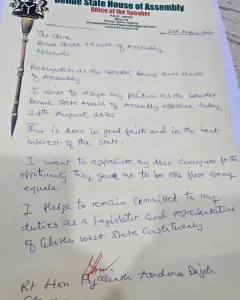 Benue State House of Assembly
Office of the Speaker
24th August 2025
The Clerk
Benue State House of Assembly,
Makurdi
Resignation as the Speaker, Benue State House
of Assembly
I write to resign my position as the Speaker
Benue State House of Assembly effective today,
24th August, 2025
This is done in good faith and in the best
interest of the state.
I want to appreciate my dear colleagues for the
opportunity they gave me to be the first among
equals.
I pledge to remain committed to my
duties as a legislator and representative
of Gboko West State Constituency.
Rt Hon Hyacinth Aondona Dajoh